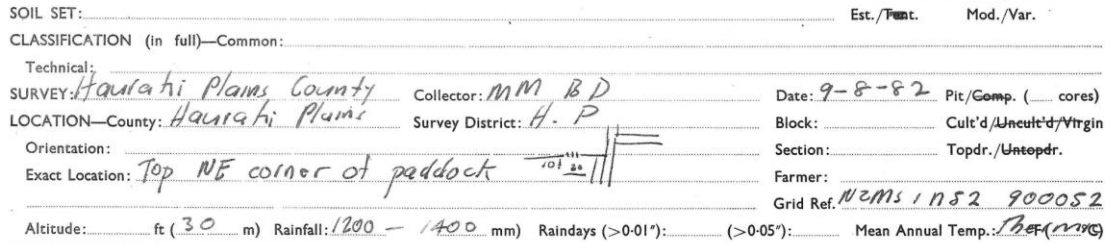 SOIL SET: Est./Tent. Mod./Var.
CLASSIFICATION (in full)—Common:
Technical:
SURVEY: Hauraki Plains County Collector: MM BD Date: 9-8-82 Pit/Comp. ( cores)
LOCATION—County: Hauraki Plains Survey District: H. P Block: Cult'd/Uncult'd/Virgin
Orientation: Section: Topdr./Untopdr.
Exact Location: Top NE corner of paddock Farmer:
Grid Ref. NZMS 1 N52 900052
Altitude: ft ( 30 m) Rainfall: 1200 - 1400 mm) Raindays (>0·01"): (>0·05"): Mean Annual Temp.: